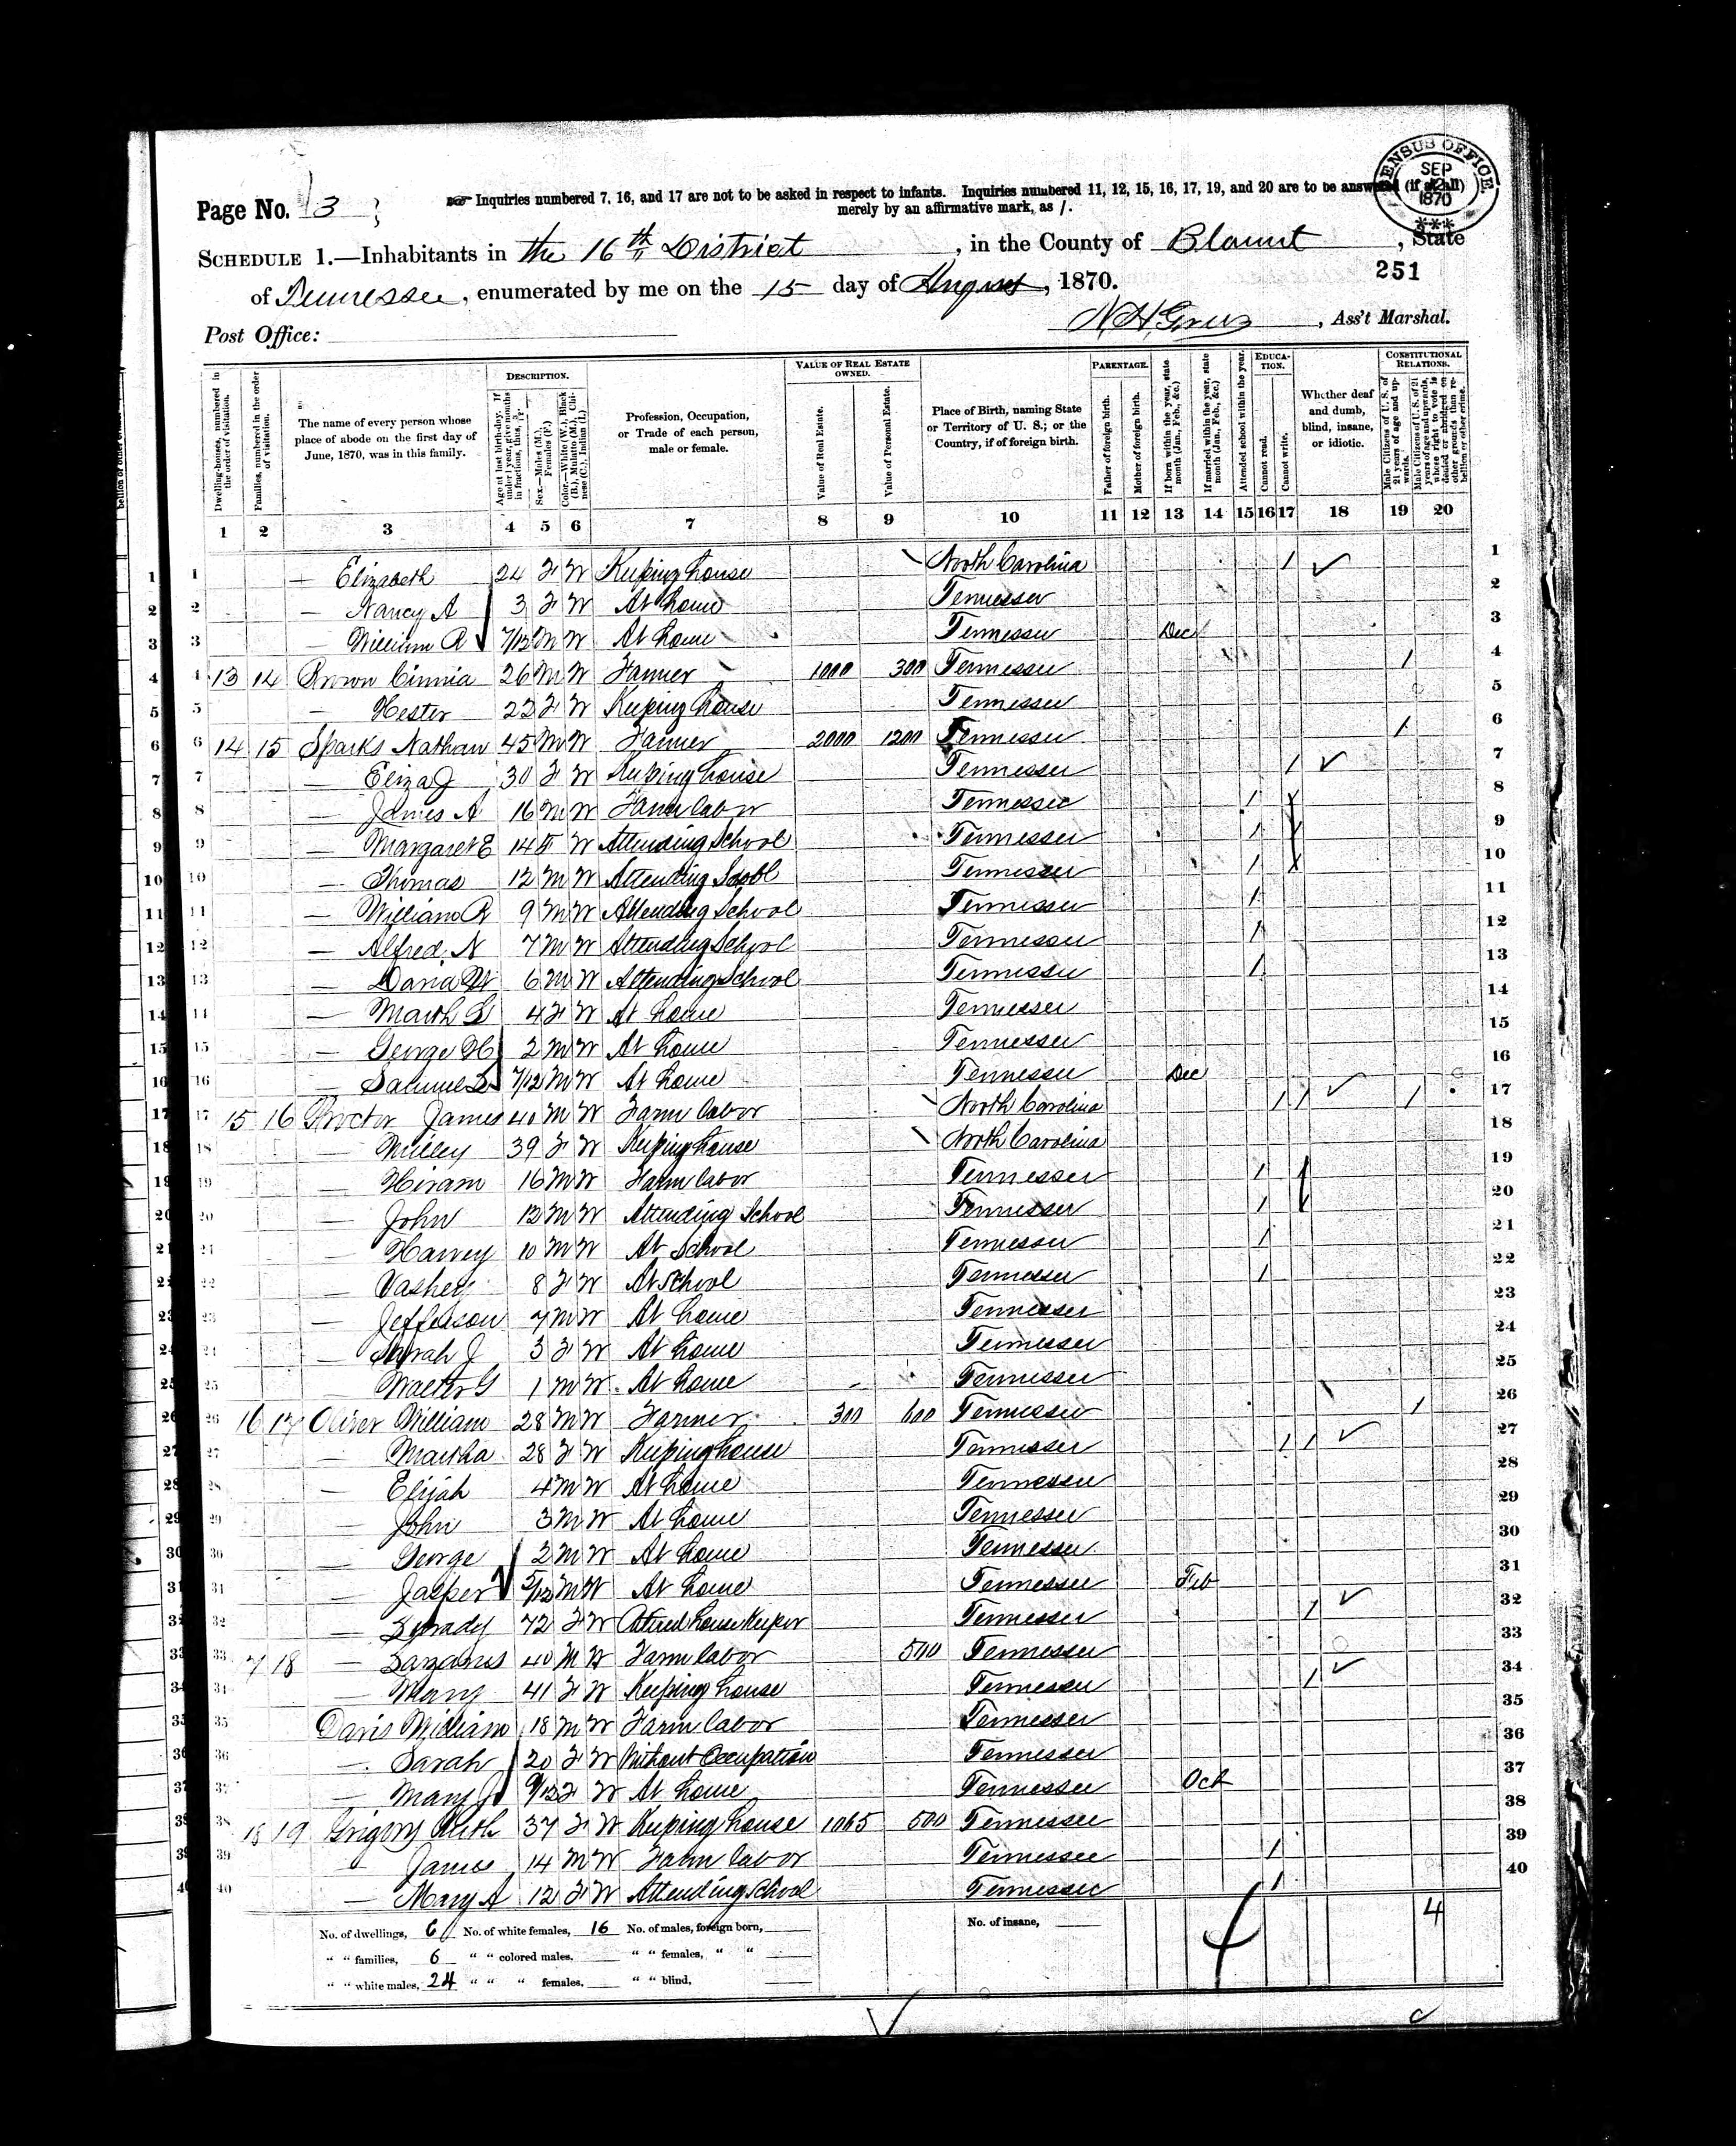 CENSUS OFFICE SEP 12 1870 ***
Page No. 3
Inquiries numbered 7, 16, and 17 are not to be asked in respect to infants. Inquiries numbered 11, 12, 15, 16, 17, 19, and 20 are to be answered (if at all)
merely by an affirmative mark, as /.
SCHEDULE 1.—Inhabitants in the 16th District, in the County of Blount, State
251
of Tennessee, enumerated by me on the 15 day of August, 1870.
Post Office:
, Ass't Marshal.
DESCRIPTION. VALUE OF REAL ESTATE OWNED. PARENTAGE. EDUCATION. CONSTITUTIONAL RELATIONS.
Dwelling-houses, numbered in the order of visitation.
Families, numbered in the order of visitation.
The name of every person whose place of abode on the first day of June, 1870, was in this family.
Age at last birth-day. If under 1 year, give months in fractions, thus, 3/12.
Sex.—Males (M.), Females (F.)
Color.—White (W.), Black (B.), Mulatto (M.), Chinese (C.), Indian (I.)
Profession, Occupation, or Trade of each person, male or female.
Value of Real Estate.
Value of Personal Estate.
Place of Birth, naming State or Territory of U. S.; or the Country, if of foreign birth.
Father of foreign birth.
Mother of foreign birth.
If born within the year, state month (Jan., Feb., &c.)
If married within the year, state month (Jan., Feb., &c.)
Attended school within the year.
Cannot read.
Cannot write.
Whether deaf and dumb, blind, insane, or idiotic.
Male Citizens of U. S. of 21 years of age and upwards.
Male Citizens of U. S. of 21 years of age and upwards, whose right to vote is denied or abridged on other grounds than rebellion or other crime.
1 2 3 4 5 6 7 8 9 10 11 12 13 14 15 16 17 18 19 20
1 — Elizabeth 24 F W Keeping house North Carolina / 1
2 — Nancy A 3 F W At home Tennessee 2
3 — William R 7/12 M W At home Tennessee Dec 3
4 13 14 Brown 26 M W Farmer 1000 300 Tennessee / 4
5 — Hester 22 F W Keeping house Tennessee 5
6 14 15 Sparks Nathan 45 M W Farmer 2000 1200 Tennessee / 6
7 — Eliza J 30 F W Keeping house Tennessee / 7
8 — James A 16 M W Farm labor Tennessee / / 8
9 — Margaret E 14 F W Attending School Tennessee / / 9
10 — Thomas 12 M W Attending School Tennessee / / 10
11 — William R 9 M W Attending School Tennessee / 11
12 — Alfred N 7 M W Attending School Tennessee / 12
13 — David W 6 M W Attending School Tennessee / 13
14 — 4 F W At home Tennessee 14
15 — George H 2 M W At home Tennessee 15
16 — Samuel L 7/12 M W At home Tennessee Dec 16
17 15 16 Proctor James 40 M W Farm labor North Carolina / / / 17
18 — Milley 39 F W Keeping house North Carolina 18
19 — Hiram 16 M W Farm labor Tennessee / / 19
20 — John 12 M W Attending School Tennessee / / 20
21 — Harvey 10 M W At School Tennessee / 21
22 — Vashey 8 F W At School Tennessee / 22
23 — Jefferson 7 M W At home Tennessee 23
24 — Sarah J 3 F W At home Tennessee 24
25 — Walter G 1 M W At home Tennessee 25
26 16 17 Oliver William 28 M W Farmer 300 600 Tennessee / 26
27 — Martha 28 F W Keeping house Tennessee / / 27
28 — Elijah 4 M W At home Tennessee 28
29 — John 3 M W At home Tennessee 29
30 — George 2 M W At home Tennessee 30
31 — Jasper 5/12 M W At home Tennessee Feb 31
32 — 72 F W Retired house keeper Tennessee / 32
33 7 18 — Lazarus 40 M W Farm labor 500 Tennessee 33
34 — Mary 41 F W Keeping house Tennessee / 34
35 Davis William 18 M W Farm labor Tennessee 35
36 — Sarah 20 F W Without Occupation Tennessee 36
37 — Mary J 9/12 F W At home Tennessee Oct 37
38 18 19 Grigory Ruth 37 F W Keeping house 1065 500 Tennessee 38
39 — James 14 M W Farm labor Tennessee / 39
40 — Mary A 12 F W Attending school Tennessee / 40
No. of dwellings, 6 No. of white females, 16 No. of males, foreign born, No. of insane, 4
" " families, 6 " " colored males, " " females, " "
" " white males, 24 " " " females, " " blind,